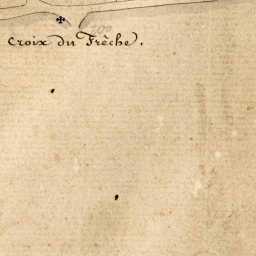 Croix du Frêche.